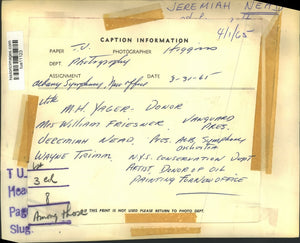 JEREMIAH NEAD
4/1/65
CAPTION INFORMATION
PAPER T.U. PHOTOGRAPHER Higgins
DEPT. Photography
ASSIGNMENT 3-31-65
Albany Symphony, New office
M.H. YAGER - DONOR
MRS WILLIAM FRIESNER - VANGUARD PRES.
JEREMIAH NEAD, PRES. ALB. SYMPHONY ORCHESTRA
WAYNE TRIMM N.Y.S. CONSERVATION DEPT
ARTIST, DONOR OF OIL
PAINTING FOR NEW OFFICE
T U
Hea 3 col
Pag 8
Slug Among those
CAUTION: THIS PRINT IS NOT FOR PUBLICATION. PLEASE RETURN TO PHOTO DEPT.